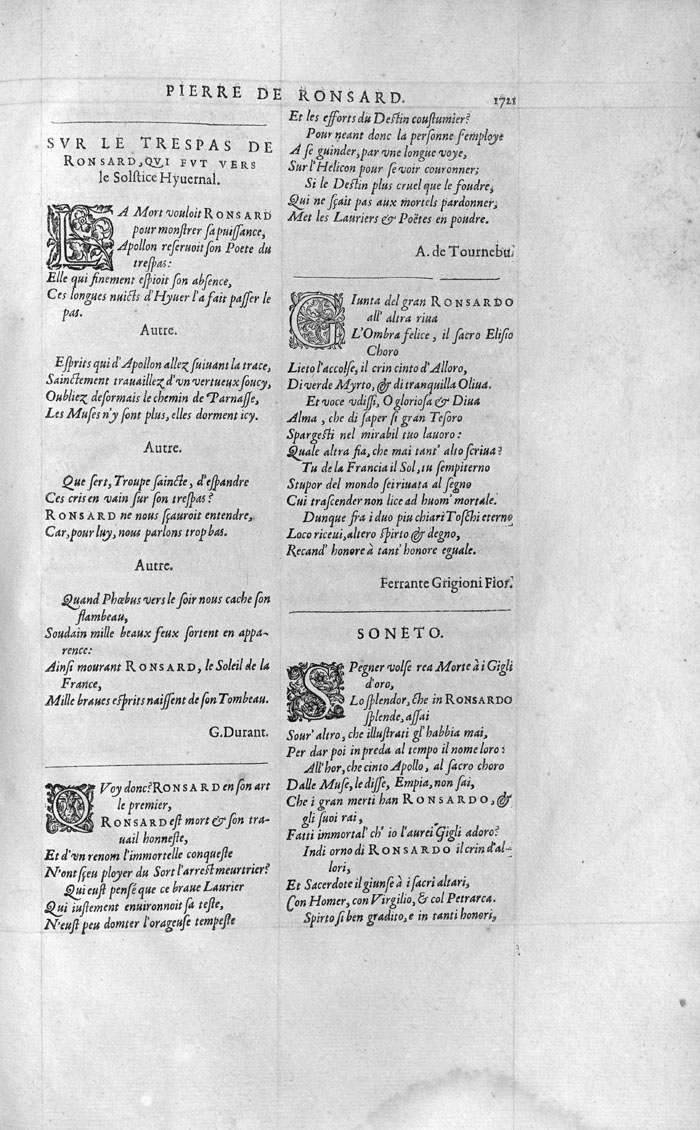 PIERRE DE RONSARD.
1721
SVR LE TRESPAS DE
RONSARD, QVI FVT VERS
le Solstice Hyuernal.
LA Mort vouloit RONSARD
pour monstrer sa puissance,
Apollon reseruoit son Poete du
trespas:
Elle qui finement espioit son absence,
Ces longues nuicts d'Hyuer l'a fait passer le
pas.
Autre.
Esprits qui d'Apollon allez suiuant la trace,
Sainctement trauaillez d'vn vertueux soucy,
Oubliez desormais le chemin de Parnasse,
Les Muses n'y sont plus, elles dorment icy.
Autre.
Que sert, Troupe saincte, d'espandre
Ces cris en vain sur son trespas?
RONSARD ne nous sçauroit entendre,
Car, pour luy, nous parlons trop bas.
Autre.
Quand Phœbus vers le soir nous cache son
flambeau,
Soudain mille beaux feux sortent en appa-
rence:
Ainsi mourant RONSARD, le Soleil de la
France,
Mille braues esprits naissent de son Tombeau.
G. Durant.
QVoy donc? RONSARD en son art
le premier,
RONSARD est mort & son tra-
uail honneste,
Et d'vn renom l'immortelle conqueste
N'ont sçeu ployer du Sort l'arrest meurtrier?
Qui eust pensé que ce braue Laurier
Qui iustement enuironnoit sa teste,
N'eust peu domter l'orageuse tempeste
Et les efforts du Destin coustumier?
Pour neant donc la personne s'employe
A se guinder, par vne longue voye,
Sur l'Helicon pour se voir couronner;
Si le Destin plus cruel que le foudre,
Qui ne sçait pas aux mortels pardonner,
Met les Lauriers & Poëtes en poudre.
A. de Tournebu.
GIunta del gran RONSARDO
all' altra riua
L'Ombra felice, il sacro Elisio
Choro
Lieto l'accolse, il crin cinto d'Alloro,
Di verde Myrto, & di tranquilla Oliua.
Et voce vdissi, O gloriosa & Diua
Alma, che di saper si gran Tesoro
Spargesti nel mirabil tuo lauoro:
Quale altra fia, che mai tant' alto scriua?
Tu de la Francia il Sol, tu sempiterno
Stupor del mondo sei riuata al segno
Cui trascender non lice ad huom' mortale.
Dunque fra i duo piu chiari Toschi eterno
Loco riceui, altero spirto & degno,
Recand' honore à tant' honore eguale.
Ferrante Grigioni Fior.
SONETO.
SPegner volse rea Morte à i Gigli
d'oro,
Lo splendor, che in RONSARDO
splende, assai
Sour' altro, che illustrati gl' habbia mai,
Per dar poi in preda al tempo il nome loro:
All' hor, che cinto Apollo, al sacro choro
Dalle Muse, le disse, Empia, non sai,
Che i gran merti han RONSARDO, &
gli suoi rai,
Fatti immortal' ch' io l'aurei Gigli adoro?
Indi orno di RONSARDO il crin d'al-
lori,
Et Sacerdote il giunse à i sacri altari,
Con Homer, con Virgilio, & col Petrarca.
Spirto si ben gradito, e in tanti honori,